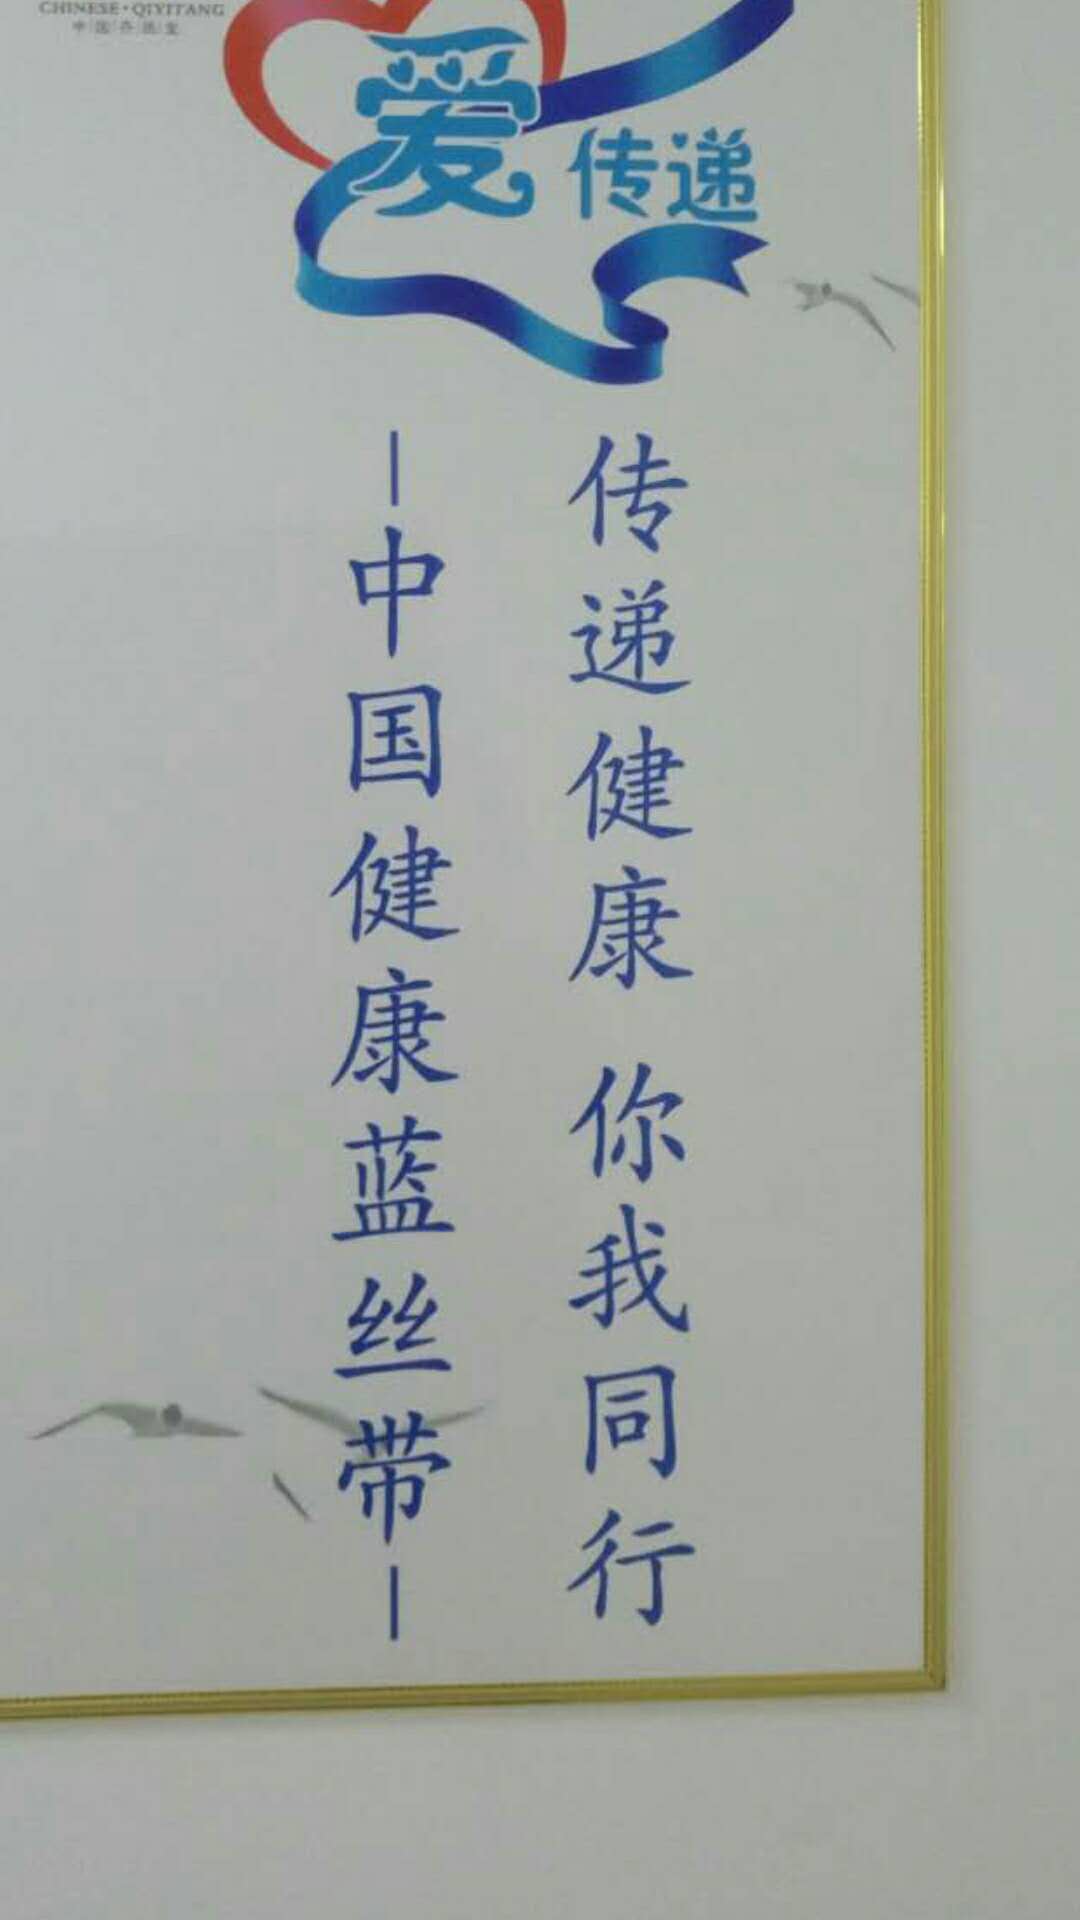 CHINESE·QIYITANG
爱传递
传递健康 你我同行
—中国健康蓝丝带—